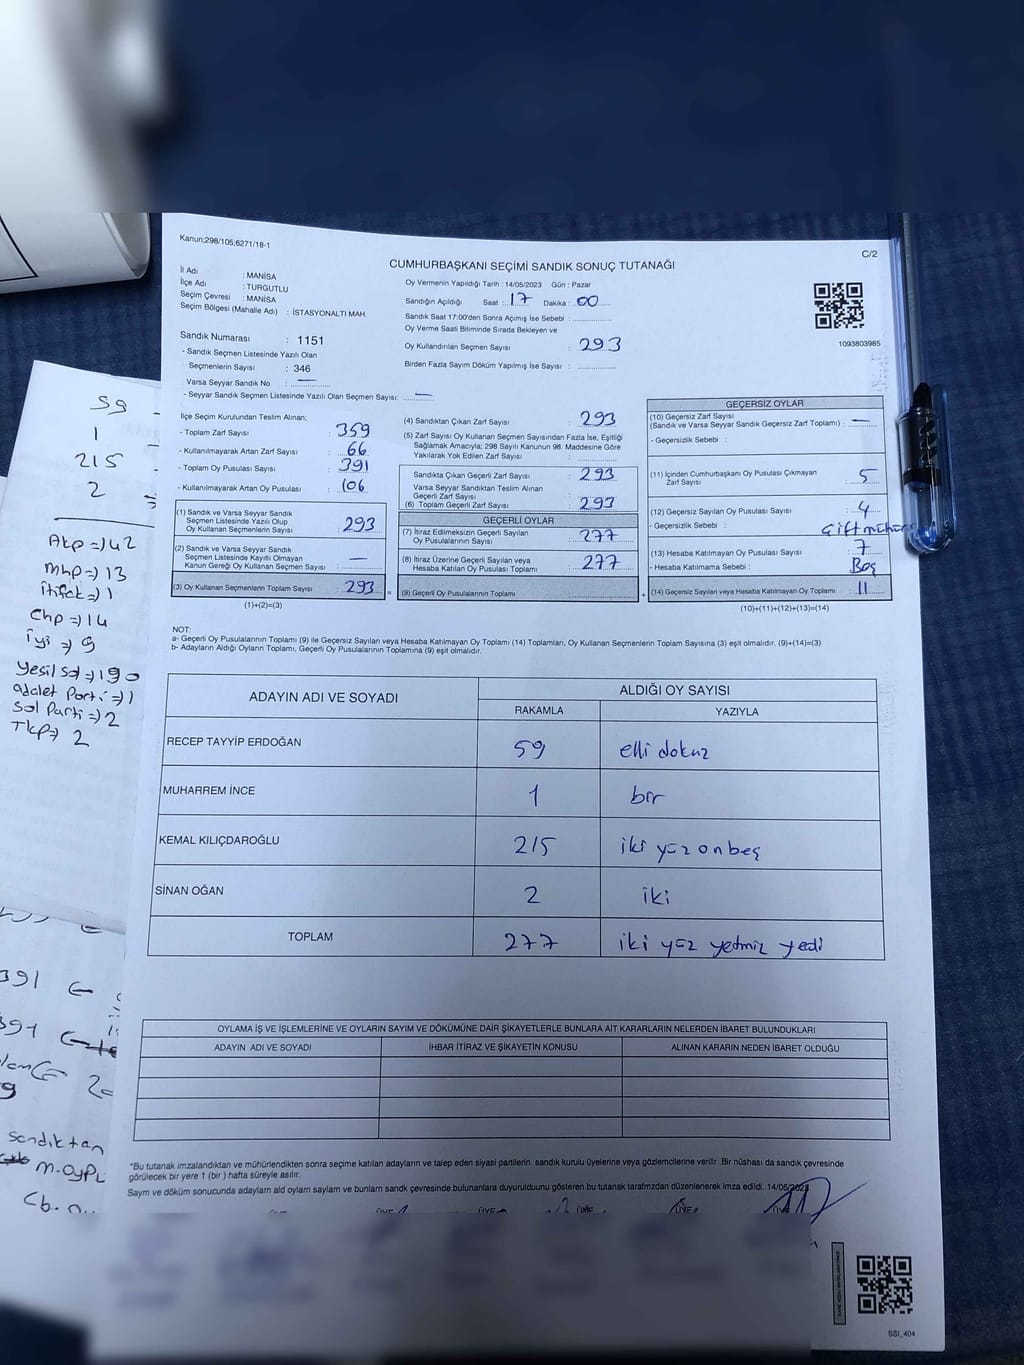 Kanun;298/105;6271/18-1
C/2
CUMHURBAŞKANI SEÇİMİ SANDIK SONUÇ TUTANAĞI
İl Adı : MANİSA
İlçe Adı : TURGUTLU
Seçim Çevresi : MANİSA
Seçim Bölgesi (Mahalle Adı) : İSTASYONALTI MAH.
Sandık Numarası : 1151
- Sandık Seçmen Listesinde Yazılı Olan
Seçmenlerin Sayısı : 346
Varsa Seyyar Sandık No : —
- Seyyar Sandık Seçmen Listesinde Yazılı Olan Seçmen Sayısı: —
Oy Vermenin Yapıldığı Tarih : 14/05/2023 Gün : Pazar
Sandığın Açıldığı Saat : 17 Dakika : 00
Sandık Saat 17:00'den Sonra Açımış İse Sebebi :
Oy Verme Saati Bitiminde Sırada Bekleyen ve
Oy Kullandırılan Seçmen Sayısı : 293
Birden Fazla Sayım Döküm Yapılmış İse Sayısı :
1093803985
İlçe Seçim Kurulundan Teslim Alınan;
- Toplam Zarf Sayısı : 359
- Kullanılmayarak Artan Zarf Sayısı : 66
- Toplam Oy Pusulası Sayısı : 391
- Kullanılmayarak Artan Oy Pusulası : 106
(1) Sandık ve Varsa Seyyar Sandık
Seçmen Listesinde Yazılı Olup
Oy Kullanan Seçmenlerin Sayısı : 293
(2) Sandık ve Varsa Seyyar Sandık
Seçmen Listesinde Kayıtlı Olmayan
Kanun Gereği Oy Kullanan Seçmen Sayısı : —
(3) Oy Kullanan Seçmenlerin Toplam Sayısı : 293
(1)+(2)=(3)
(4) Sandıktan Çıkan Zarf Sayısı : 293
(5) Zarf Sayısı Oy Kullanan Seçmen Sayısından Fazla İse, Eşitliği
Sağlamak Amacıyla; 298 Sayılı Kanunun 98. Maddesine Göre
Yakılarak Yok Edilen Zarf Sayısı :
Sandıkta Çıkan Geçerli Zarf Sayısı : 293
Varsa Seyyar Sandıktan Teslim Alınan
Geçerli Zarf Sayısı :
(6) Toplam Geçerli Zarf Sayısı : 293
GEÇERLİ OYLAR
(7) İtiraz Edilmeksizin Geçerli Sayılan
Oy Pusulalarının Sayısı : 277
(8) İtiraz Üzerine Geçerli Sayılan veya
Hesaba Katılan Oy Pusulası Toplamı : 277
(9) Geçerli Oy Pusulalarının Toplamı :
GEÇERSİZ OYLAR
(10) Geçersiz Zarf Sayısı
(Sandık ve Varsa Seyyar Sandık Geçersiz Zarf Toplamı) : —
- Geçersizlik Sebebi :
(11) İçinden Cumhurbaşkanı Oy Pusulası Çıkmayan
Zarf Sayısı : 5
(12) Geçersiz Sayılan Oy Pusulası Sayısı : 4
- Geçersizlik Sebebi : Çift mühür
(13) Hesaba Katılmayan Oy Pusulası Sayısı : 7
- Hesaba Katılmama Sebebi : Boş
(14) Geçersiz Sayılan veya Hesaba Katılmayan Oy Toplamı : 11
(10)+(11)+(12)+(13)=(14)
NOT:
a- Geçerli Oy Pusulalarının Toplamı (9) ile Geçersiz Sayılan veya Hesaba Katılmayan Oy Toplamı (14) Toplamları, Oy Kullanan Seçmenlerin Toplam Sayısına (3) eşit olmalıdır. (9)+(14)=(3)
b- Adayların Aldığı Oyların Toplamı, Geçerli Oy Pusulalarının Toplamına (9) eşit olmalıdır.
ADAYIN ADI VE SOYADI ALDIĞI OY SAYISI
RAKAMLA YAZIYLA
RECEP TAYYİP ERDOĞAN 59 elli dokuz
MUHARREM İNCE 1 bir
KEMAL KILIÇDAROĞLU 215 iki yüz onbeş
SİNAN OĞAN 2 iki
TOPLAM 277 iki yüz yetmiz yedi
OYLAMA İŞ VE İŞLEMLERİNE VE OYLARIN SAYIM VE DÖKÜMÜNE DAİR ŞİKAYETLERLE BUNLARA AİT KARARLARIN NELERDEN İBARET BULUNDUKLARI
ADAYIN ADI VE SOYADI İHBAR İTİRAZ VE ŞİKAYETİN KONUSU ALINAN KARARIN NEDEN İBARET OLDUĞU
*Bu tutanak imzalandıktan ve mühürlendikten sonra seçime katılan adayların ve talep eden siyasi partilerin sandık kurulu üyelerine veya gözlemcilerine verilir .Bir nüshası da sandık çevresinde
görülecek bir yere 1 (bir ) hafta süreyle asılır.
Sayım ve döküm sonucunda adayların aldığı oyların sayıları ve bunların sandık çevresinde bulunanlara duyurulduğunu gösteren bu tutanak tarafımızdan düzenlenerek imza edildi. 14/05/2023
SSI_404
59
1
215
2
Akp => 42
Mhp => 13
ittifak => 1
Chp => 14
iyi => 9
Yeşil Sol => 190
adalet Parti => 1
Sol Parti => 2
Tkp => 2
391
391
Sandıktan
M.OyPL
Cb.